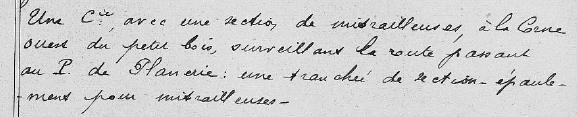 Une Cie, avec une section de mitrailleuses, à la Corne
ouest du petit bois, surveillant la route passant
au P. de Plancrie : une tranchée de section - épaule-
ment pour mitrailleuses -